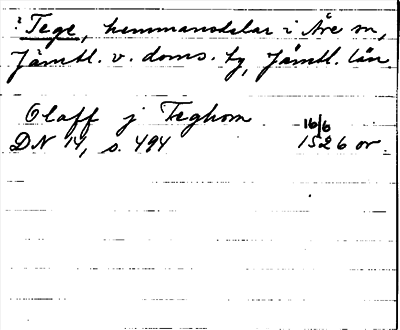 : Tege, hemmansdelar i Åre sn,
Jämtl. v. doms. tg, Jämtl. län.
Olaff j Teghom 16/6
DN 14, s. 494 1526 or.